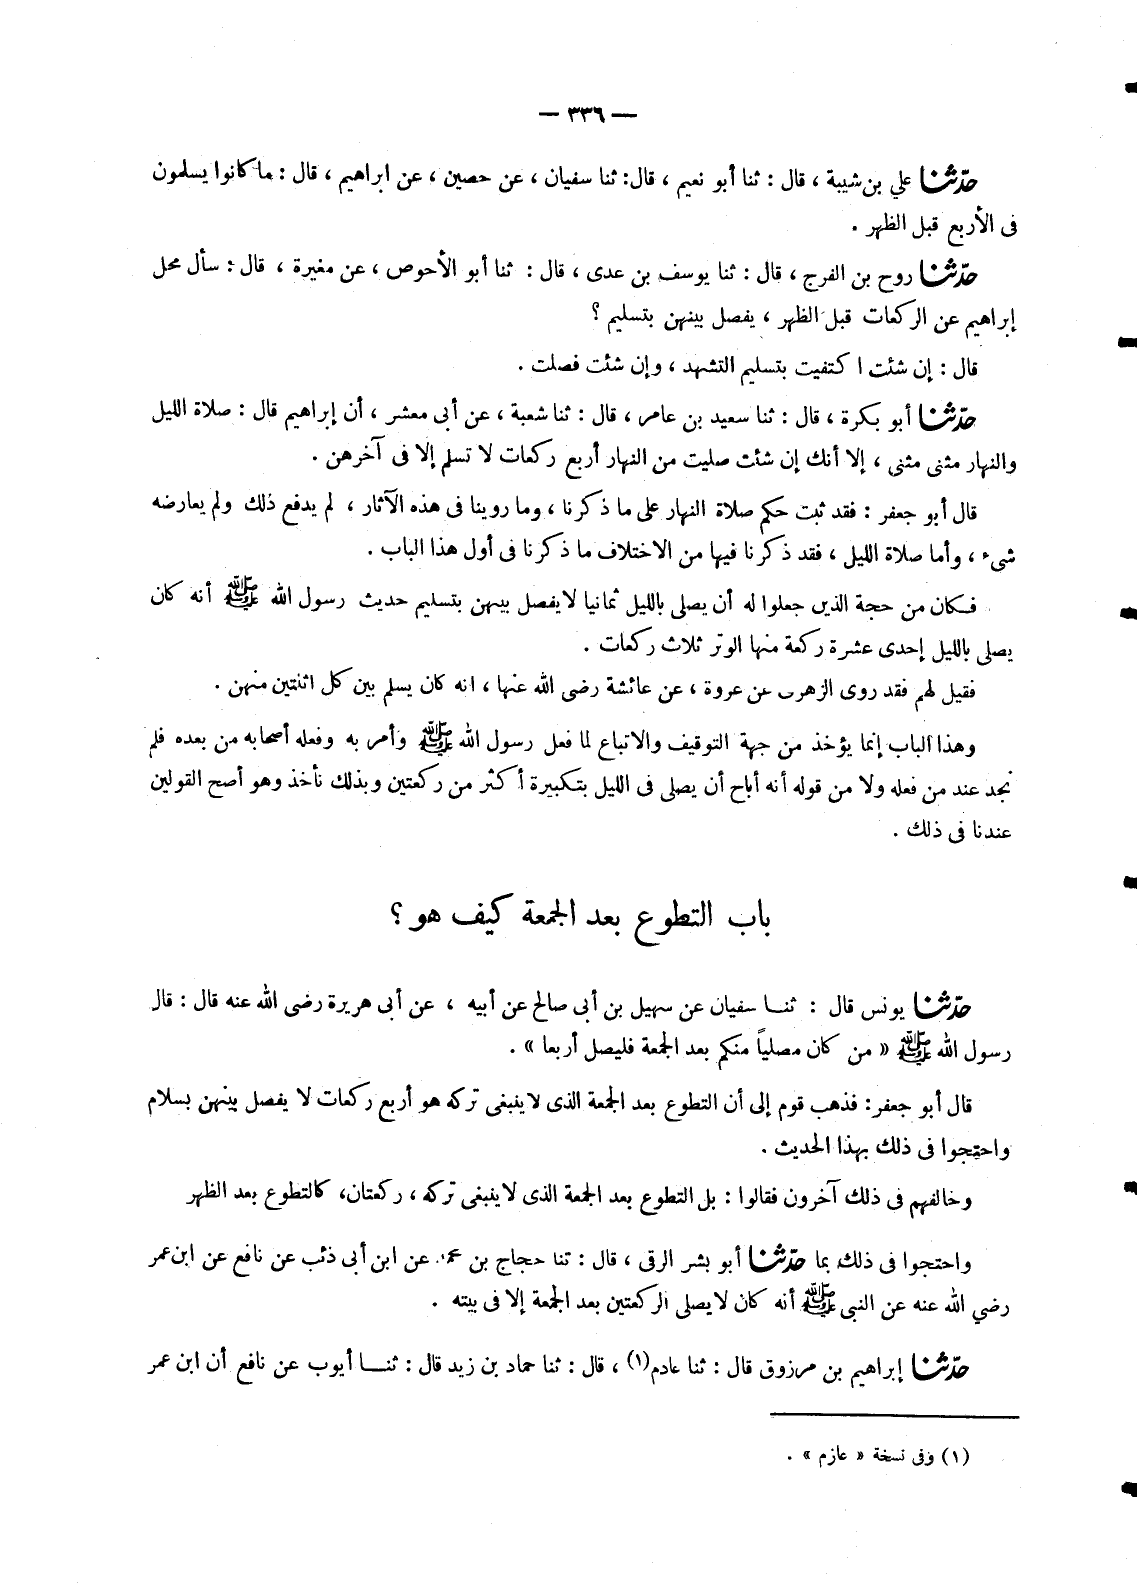 — ٣٣٦ —
حدّثنا علي بن شيبة ، قال : ثنا أبو نعيم ، قال: ثنا سفيان ، عن حصين ، عن ابراهيم ، قال : ما كانوا يسلمون
فى الأربع قبل الظهر .
حدّثنا روح بن الفرج ، قال : ثنا يوسف بن عدى ، قال : ثنا أبو الأحوص ، عن مغيرة ، قال : سأل محل
إبراهيم عن الركعات قبل الظهر ، يفصل بينهن بتسليم ؟
قال : إن شئت اكتفيت بتسليم التشهد ، وإن شئت فصلت .
حدّثنا أبو بكرة ، قال : ثنا سعيد بن عامر ، قال : ثنا شعبة ، عن أبى معشر ، أن إبراهيم قال : صلاة الليل
والنهار مثنى مثنى ، إلا أنك إن شئت صليت من النهار أربع ركعات لا تسلم إلا فى آخرهن .
قال أبو جعفر : فقد ثبت حكم صلاة النهار على ما ذكرنا ، وما روينا فى هذه الآثار ، لم يدفع ذلك ولم يعارضه
شىء ، وأما صلاة الليل ، فقد ذكرنا فيها من الاختلاف ما ذكرنا فى أول هذا الباب .
فكان من حجة الذين جعلوا له أن يصلى بالليل ثمانيا لا يفصل بينهن بتسليم حديث رسول الله ﷺ أنه كان
يصلى بالليل إحدى عشرة ركعة منها الوتر ثلاث ركعات .
فقيل لهم فقد روى الزهرى عن عروة ، عن عائشة رضى الله عنها ، انه كان يسلم بين كل اثنتين منهن .
وهذا الباب إنما يؤخذ من جهة التوقيف والاتباع لما فعل رسول الله ﷺ وأمر به وفعله أصحابه من بعده فلم
نجد عند من فعله ولا من قوله أنه أباح أن يصلى فى الليل بتكبيرة أكثر من ركعتين وبذلك نأخذ وهو أصح القولين
عندنا فى ذلك .
باب التطوع بعد الجمعة كيف هو ؟
حدّثنا يونس قال : ثنا سفيان عن سهيل بن أبى صالح عن أبيه ، عن أبى هريرة رضى الله عنه قال : قال
رسول الله ﷺ « من كان مصلياً منكم بعد الجمعة فليصل أربعا » .
قال أبو جعفر: فذهب قوم إلى أن التطوع بعد الجمعة الذى لا ينبغى تركه هو أربع ركعات لا يفصل بينهن بسلام
واحتجوا فى ذلك بهذا الحديث .
وخالفهم فى ذلك آخرون فقالوا : بل التطوع بعد الجمعة الذى لا ينبغى تركه ، ركعتان، كالتطوع بعد الظهر
واحتجوا فى ذلك بما حدّثنا أبو بشر الرقى ، قال : ثنا حجاج بن عن ابن أبى ذئب عن نافع عن ابن عمر
رضي الله عنه عن النبى ﷺ أنه كان لا يصلى الركعتين بعد الجمعة إلا فى بيته .
حدّثنا إبراهيم بن مرزوق قال : ثنا عادم(١) ، قال : ثنا حماد بن زيد قال : ثنا أيوب عن نافع أن ابن عمر
(١) وفى نسخة « عازم » .